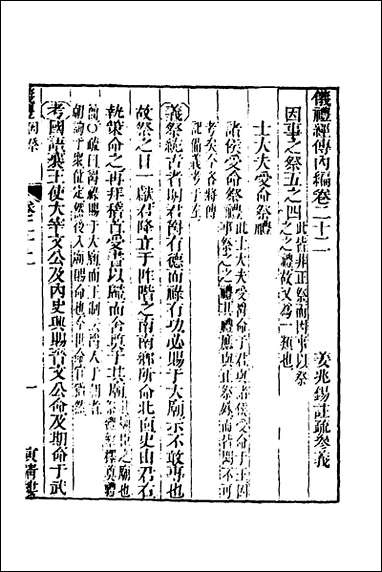 儀禮經傳內編卷二十二
姜兆錫註疏參義
因事之祭五之四
此皆非正祭而因事以祭
之之禮故又為一類也
士大夫受命祭禮
諸侯受命祭禮
此士大夫受禮命于君與諸侯受命于王因
事祭之之禮其禮應與正祭殊而皆闕不可
考矣今各將傳
記備義考于左
義祭統古者明君爵有德而祿有功必賜于大廟示不敢專也
故祭之日一獻君降立于阼階之南南鄉所命北面史由君右
執策命之再拜稽首受書以歸而舍奠于其廟
考國語襄王使大宰文公及內史興賜晉文公命及期命于武
儀禮
因祭
卷二十二
一
寅清樓